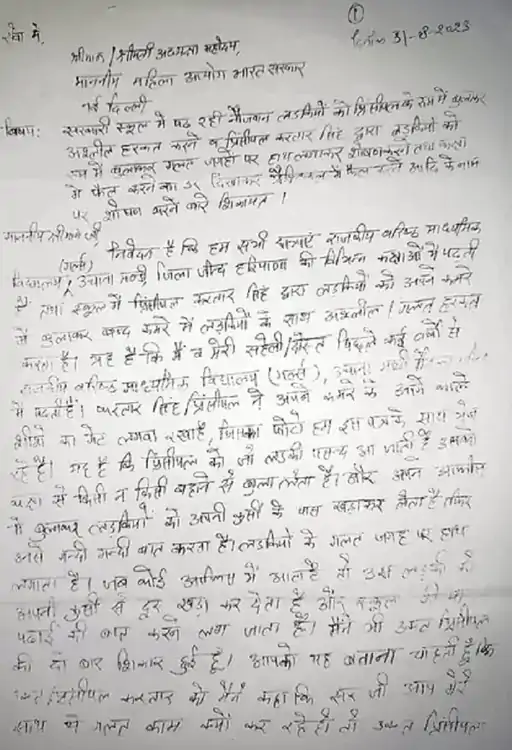 ①
दिनांक 31-8-2023
सेवा में,
श्रीमान / श्रीमती अध्यक्षा महोदय,
माननीय महिला आयोग भारत सरकार
नई दिल्ली
विषय: सरकारी स्कूल में पढ़ रही नौजवान लड़कियों को प्रिंसीपल के रूम में बुलाकर
अश्लील हरकत करने व प्रिंसीपल करतार सिंह द्वारा लड़कियों को
रूम में बुलाकर गलत जगहों पर हाथ लगाकर शोषण करने तथा
में फेल करने का डर दिखाकर प्रैक्टिकल में फेल करने आदि के नाम
पर शोषण करने बारे शिकायत।
माननीय श्रीमान जी
निवेदन है कि हम सभी छात्राएं राजकीय वरिष्ठ माध्यमिक
विद्यालय (गर्ल्स), उचाना मण्डी जिला जीन्द हरियाणा की विभिन्न कक्षाओं में पढ़ती
हैं तथा स्कूल में प्रिंसीपल करतार सिंह द्वारा लड़कियों को अपने कमरे
में बुलाकर बन्द कमरे में लड़कियों के साथ अश्लील / गलत हरकत
करता है। यह है कि मैं व मेरी सहेली/दोस्त पिछले कई वर्षों से
राजकीय वरिष्ठ माध्यमिक विद्यालय (गर्ल्स), उचाना मण्डी
में पढ़ती है। करतार सिंह/प्रिंसीपल ने अपने कमरे के आगे काले
शीशे का गेट लगवा रखा है, जिसका फोटो हम इस पत्र के साथ भेज
रहे है। यह है कि प्रिंसीपल को जो लड़की पसन्द आ जाती है उसको
कक्षा से किसी न किसी बहाने से बुला लेता है। और अपने आफिस
में बुलाकर लड़कियों को अपनी कुर्सी के पास खड़ा कर लेता है फिर
उनसे गन्दी गन्दी बात करता है। लड़कियों के गलत जगह पर हाथ
लगाता है। जब कोई आफिस में आता है तो उस लड़की को
अपनी कुर्सी से दूर खड़ा कर देता है और स्कूल
पढ़ाई की बात करने लग जाता है। मैंने भी उक्त प्रिंसीपल
की दो बार शिकार हुई हूँ। आपको यह बताना चाहती हूँ कि
उक्त प्रिंसीपल करतार को मैंने कहा कि सर जी आप मेरे
साथ ये गलत काम क्यों कर रहे हो तो उक्त प्रिंसीपल